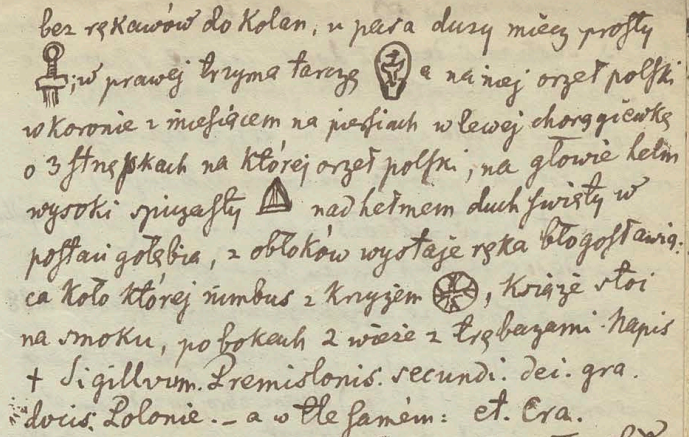 bez rękawów do kolan, u pasa duży miecz prosty
; w prawej trzyma tarczę a na niej orzeł polski
w koronie z miesiącem na piersiach w lewej chorągiewkę
o 3 strzępkach na której orzeł polski, na głowie hełm
wysoki spiczasty nad hełmem duch święty w
postaci gołębia, z obłoków wystaje ręka błogosławią:
ca koło której nimbus z krzyżem, Książe stoi
na smoku, po bokach 2 wieże z trębaczami. Napis
+ Sigillvum. Premislonis. secundi: dei. gra.
docis. Polonie. – a w tle samém: et. Cra.